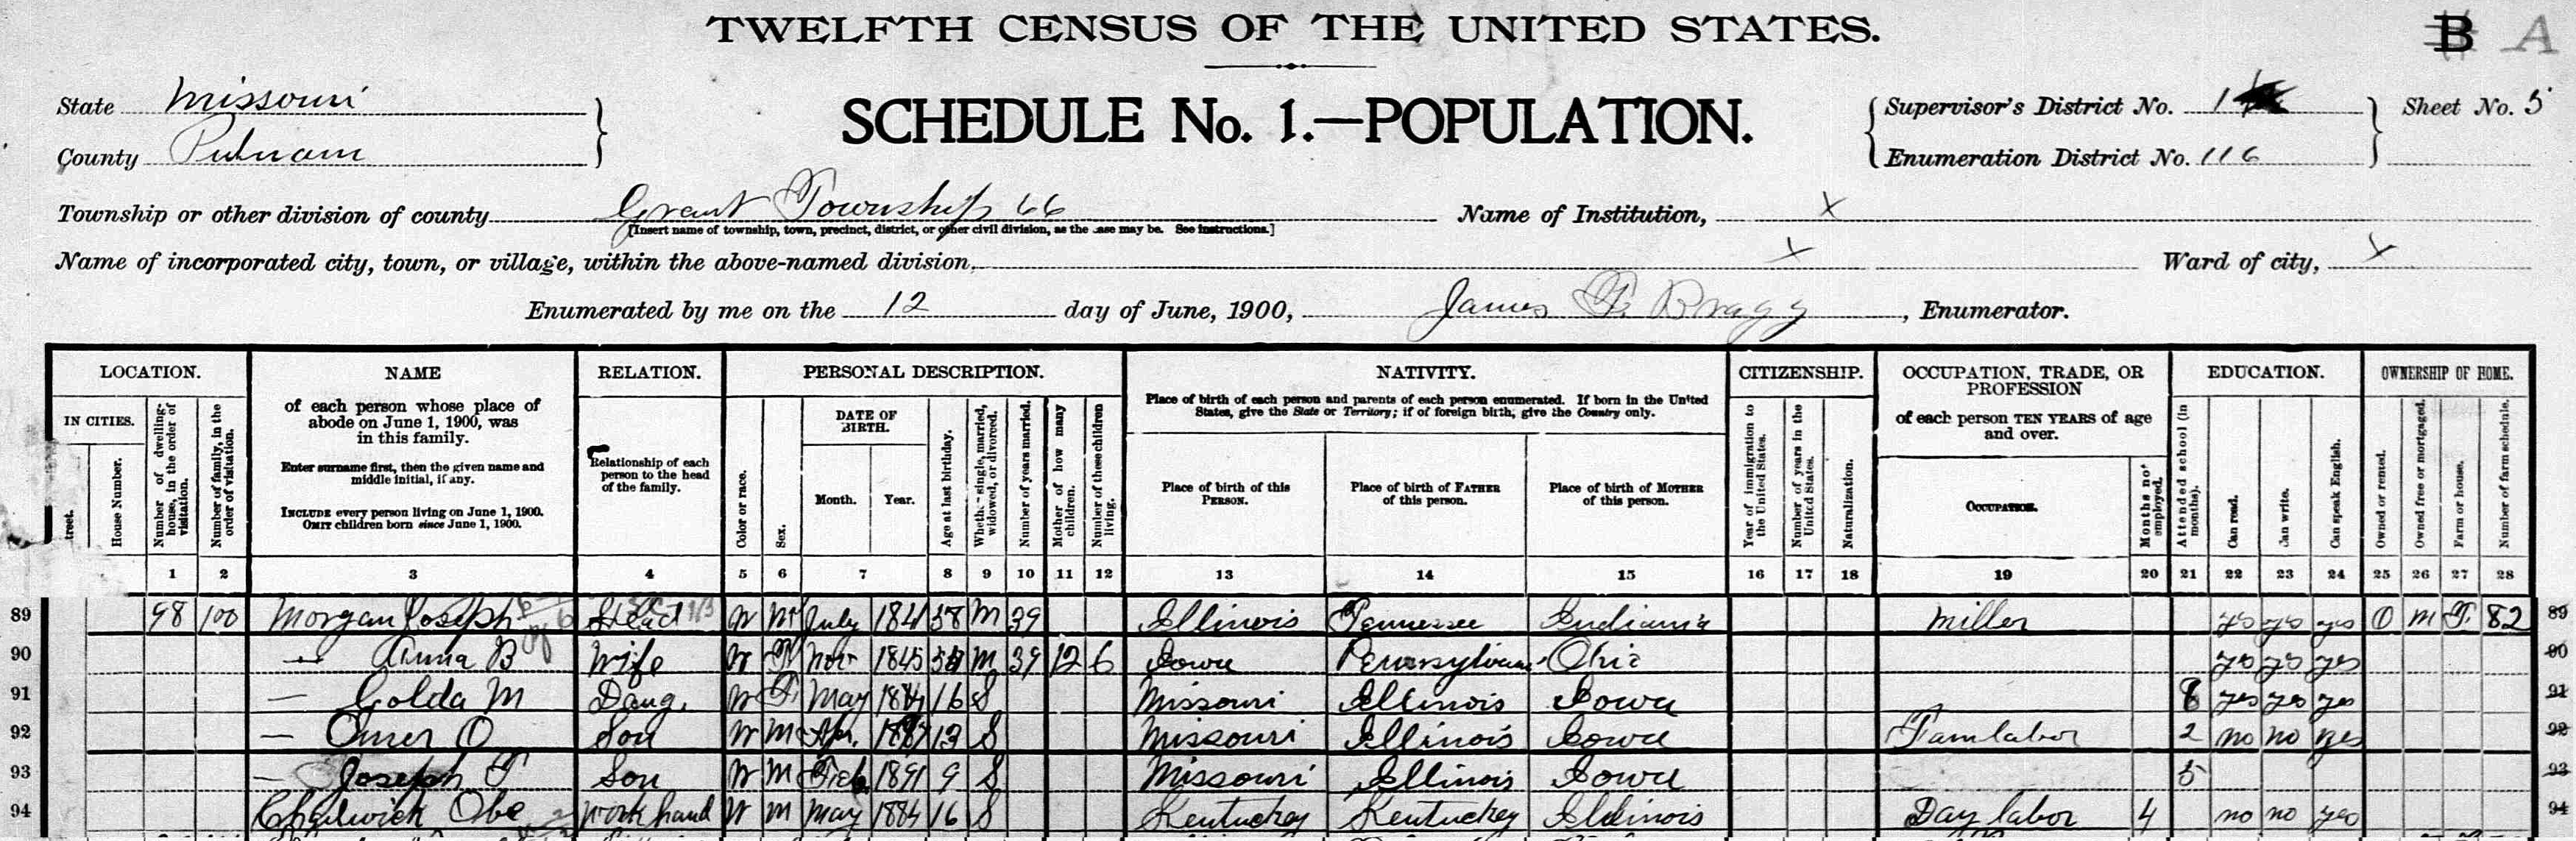 TWELFTH CENSUS OF THE UNITED STATES.
B A
State Missouri
County Putnam
SCHEDULE No. 1.—POPULATION.
Supervisor's District No. 1
Sheet No. 5
Enumeration District No. 116
Township or other division of county Grant Township 66
[Insert name of township, town, precinct, district, or other civil division, as the case may be. See instructions.]
Name of Institution, X
Name of incorporated city, town, or village, within the above-named division, X
Ward of city, X
Enumerated by me on the 12 day of June, 1900, James F. Bragg, Enumerator.
LOCATION.
IN CITIES.
Street.
House Number.
Number of dwelling-house, in the order of visitation.
Number of family, in the order of visitation.
NAME
of each person whose place of abode on June 1, 1900, was in this family.
Enter surname first, then the given name and middle initial, if any.
INCLUDE every person living on June 1, 1900.
OMIT children born since June 1, 1900.
RELATION.
Relationship of each person to the head of the family.
PERSONAL DESCRIPTION.
Color or race.
Sex.
DATE OF BIRTH.
Month.
Year.
Age at last birthday.
Whether single, married, widowed, or divorced.
Number of years married.
Mother of how many children.
Number of these children living.
NATIVITY.
Place of birth of each person and parents of each person enumerated. If born in the United States, give the State or Territory; if of foreign birth, give the Country only.
Place of birth of this PERSON.
Place of birth of FATHER of this person.
Place of birth of MOTHER of this person.
CITIZENSHIP.
Year of immigration to the United States.
Number of years in the United States.
Naturalization.
OCCUPATION, TRADE, OR PROFESSION
of each person TEN YEARS of age and over.
OCCUPATION.
Months not employed.
EDUCATION.
Attended school (in months).
Can read.
Can write.
Can speak English.
OWNERSHIP OF HOME.
Owned or rented.
Owned free or mortgaged.
Farm or house.
Number of farm schedule.
1 2 3 4 5 6 7 8 9 10 11 12 13 14 15 16 17 18 19 20 21 22 23 24 25 26 27 28
89 98 100 Morgan Joseph Head W M July 1841 58 M 39 Illinois Tennessee Indiana Miller yes yes yes O M F 82 89
90 — Anna B Wife W F Nov 1845 54 M 39 12 6 Iowa Pennsylvania Ohio yes yes yes 90
91 — Golda M Daug. W F May 1884 16 S Missouri Illinois Iowa 8 yes yes yes 91
92 — Omer O Son W M Apr. 1887 13 S Missouri Illinois Iowa Farm labor 2 no no yes 92
93 — Joseph F Son W M Feb 1891 9 S Missouri Illinois Iowa 5 93
94 Chadwick Obe Work hand W M May 1884 16 S Kentucky Kentucky Illinois Day labor 4 no no yes 94